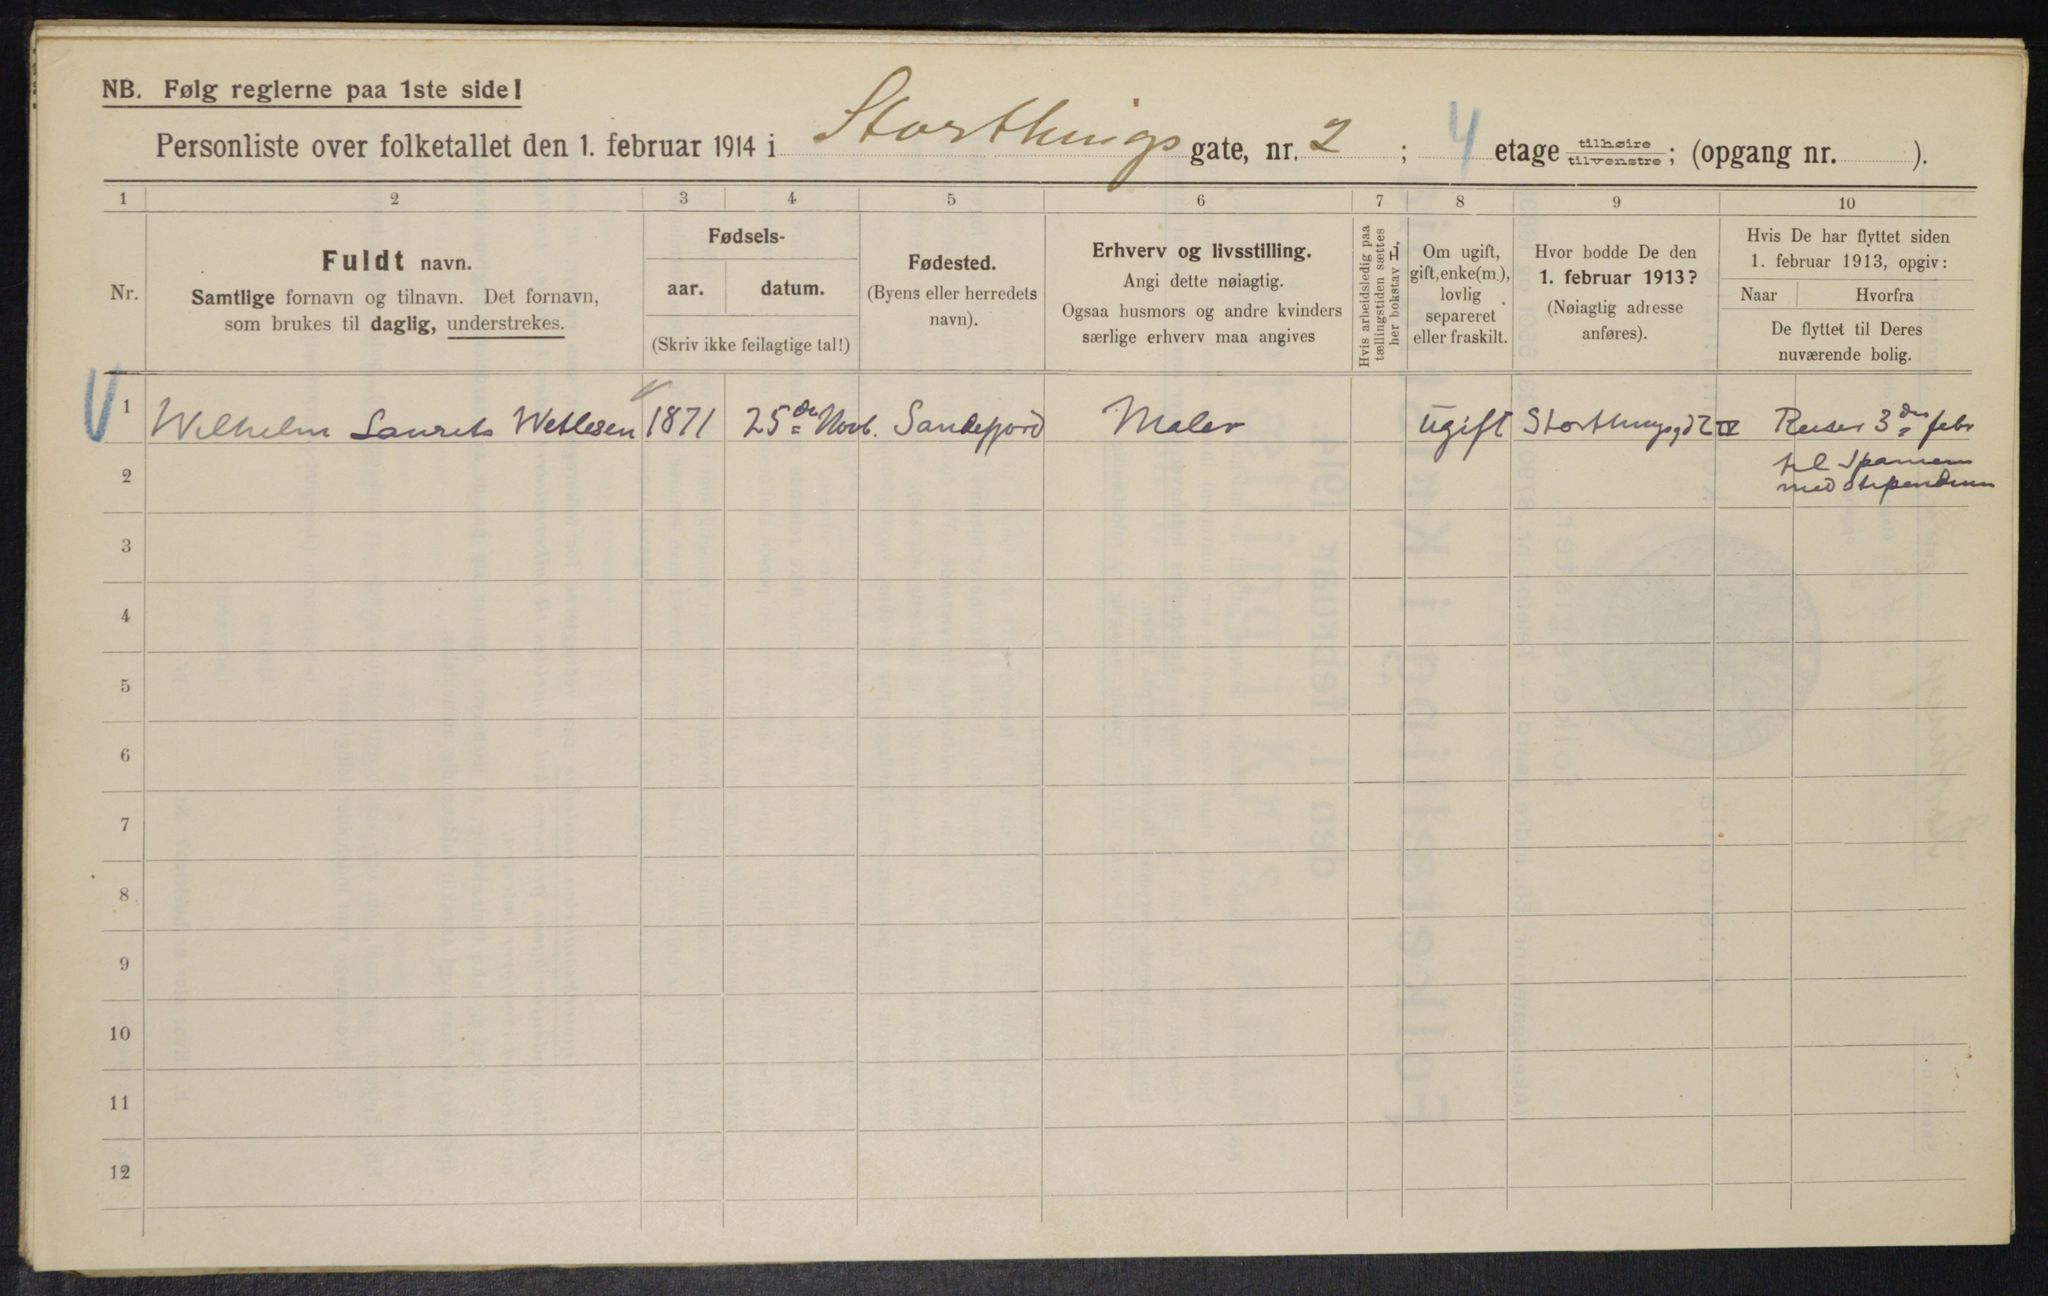 NB. Følg reglerne paa 1ste side!
Personliste over folketallet den 1. februar 1914 i Storthings gate, nr. 2; 4 etage tilhøire tilvenstre; (opgang nr. ).
1 2 3 4 5 6 7 8 9 10
Nr.
Fuldt navn.
Samtlige fornavn og tilnavn. Det fornavn,
som brukes til daglig, understrekes.
Fødsels-
aar. datum.
(Skriv ikke feilagtige tal!)
Fødested.
(Byens eller herredets
navn).
Erhverv og livsstilling.
Angi dette nøiagtig.
Ogsaa husmors og andre kvinders
særlige erhverv maa angives
Hvis arbeidsledig paa
tællingstiden sættes
her bokstav L.
Om ugift,
gift, enke(m.),
lovlig
separeret
eller fraskilt.
Hvor bodde De den
1. februar 1913?
(Nøiagtig adresse
anføres).
Hvis De har flyttet siden
1. februar 1913, opgiv:
Naar Hvorfra
De flyttet til Deres
nuværende bolig.
1 Wilhelm Laurits Wetlesen 1871 25de Novb. Sandefjord Maler ugift Storthingsgd 2 IV Reiser 3die febr
2 til Spanien
med Stipendium
3
4
5
6
7
8
9
10
11
12